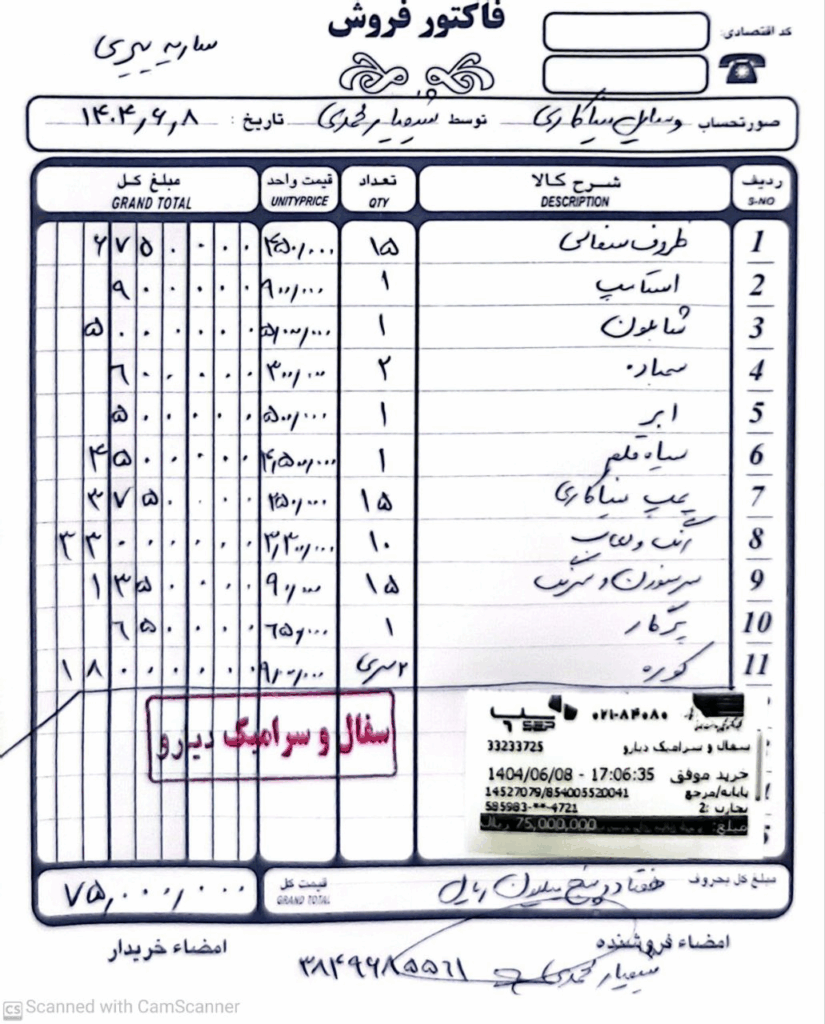 فاکتور فروش
کد اقتصادی:
صورتحساب وسایل میناکاری توسط محمدی تاریخ: ۱۴۰۴٫۶٫۸
ردیف شرح کالا تعداد قیمت واحد مبلغ کل
S-NO DESCRIPTION QTY UNITYPRICE GRAND TOTAL
1 ظروف سفالی ۱۵ ۴۵۰/۰۰۰ ۶۷۵۰۰۰۰
2 استامپ ۱ ۹۰۰/۰۰۰ ۹۰۰۰۰۰
3 شابلون ۱ ۵/۰۰۰/۰۰۰ ۵۰۰۰۰۰۰
4 سمباده ۲ ۳۰۰/۰۰۰ ۶۰۰۰۰۰
5 ابر ۱ ۵۰۰/۰۰۰ ۵۰۰۰۰۰
6 سیاه قلم ۱ ۴/۵۰۰/۰۰۰ ۴۵۰۰۰۰۰
7 پمپ میناکاری ۱۵ ۲۵۰/۰۰۰ ۳۷۵۰۰۰۰
8 رنگ و لعاب ۱۰ ۳/۳۰۰/۰۰۰ ۳۳۰۰۰۰۰۰
9 سرسوزن و سرنگ ۱۵ ۹۰/۰۰۰ ۱۳۵۰۰۰۰
10 پرگار ۱ ۶۵۰/۰۰۰ ۶۵۰۰۰۰
11 کوره ۲سری ۹/۰۰۰/۰۰۰ ۱۸۰۰۰۰۰۰
سفال و سرامیک دیارو
سپ SEP ۰۲۱-۸۴۰۸۰
سفال و سرامیک دیارو 33233725
خرید موفق 1404/06/08 - 17:06:35
پایانه/مرجع 14527079/854005520041
تجارت: 2 585983-**-4721
مبلغ: 75,000,000 ریال
مبلغ کل بحروف هفتاد و پنج میلیون ریال قیمت کل ۷۵/۰۰۰/۰۰۰
GRAND TOTAL
امضاء فروشنده امضاء خریدار
محمدی ۳۸۴۹۶۸۵۵۶۱
CS Scanned with CamScanner